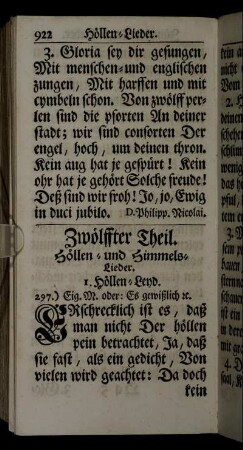 922 Höllen-Lieder.
3. Gloria sey dir gesungen,
Mit menschen-und englischen
zungen, Mit harffen und mit
cymbeln schon. Von zwölff per-
len sind die pforten An deiner
stadt; wir sind consorten Der
engel, hoch, um deinen thron.
Kein aug hat je gespürt! Kein
ohr hat je gehört Solche freude!
Deß sind wir froh! Jo, jo, Ewig
in duci jubilo. D. Philipp. Nicolai.
Zwölffter Theil.
Höllen- und Himmels-
Lieder.
1. Höllen-Leyd.
297.) Eig. M. oder: Es gewißlich ꝛc.
ERschrecklich ist es, daß
man nicht Der höllen
pein betrachtet, Ja, daß
sie fast, als ein gedicht, Von
vielen wird geachtet: Da doch
kein